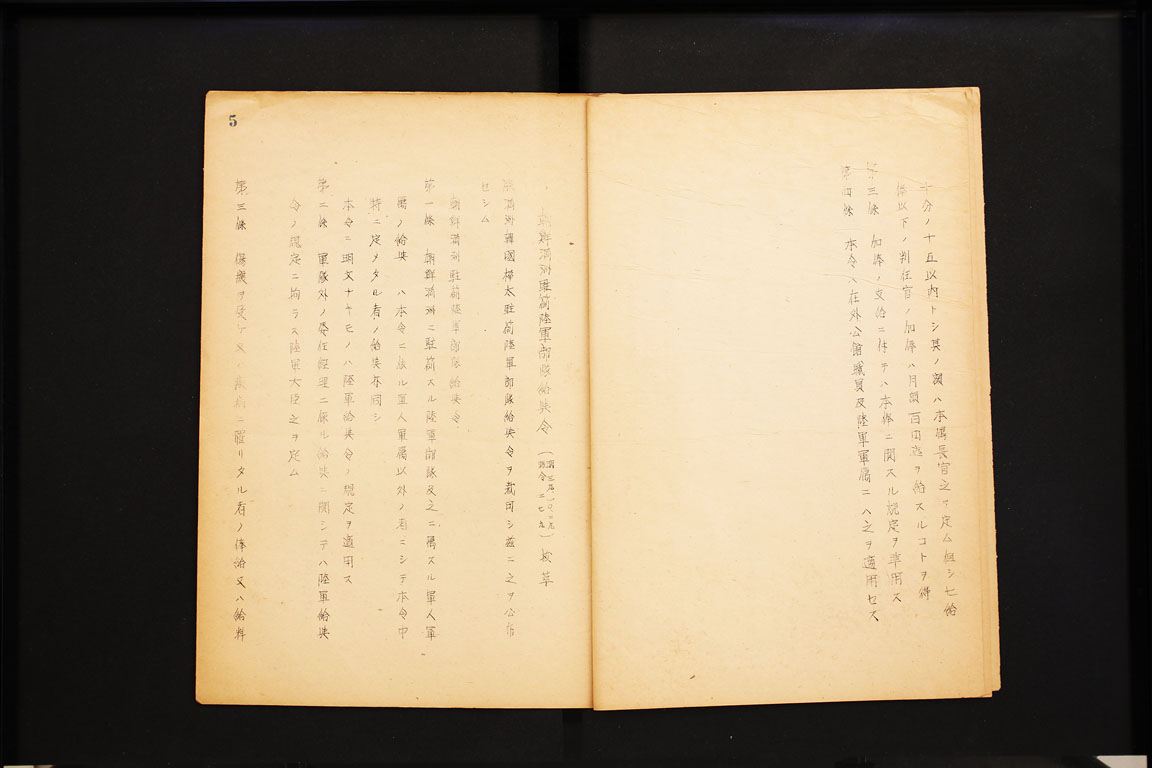 十分ノ十五以内トシ其ノ額ハ本属長官之ヲ定ム但シ七給
俸以下ノ判任官ノ加俸ハ月額百円迄ヲ給スルコトヲ得
第三條 加俸ノ支給ニ付テハ本俸ニ関スル規定ヲ準用ス
第四條 本令ハ在外公館職員及陸軍軍属ニハ之ヲ適用セス
朝鮮満洲駐箚陸軍部隊給与令
勅令二七九 抜萃
満洲韓國樺太駐箚陸軍部隊給与令ヲ裁可シ茲ニ之ヲ公布
セシム
朝鮮満洲駐箚陸軍部隊給与令
第一條 朝鮮満洲ニ駐箚スル陸軍部隊及之ニ属スル軍人軍
属ノ給与ハ本令ニ依ル軍人軍属以外ノ者ニシテ本令中
特ニ定メタル者ノ給与亦同シ
本令ニ明文ナキモノハ陸軍給与令ノ規定ヲ適用ス
第二條 軍隊外ノ委任経理ニ係ル給与ニ関シテハ陸軍給与
令ノ規定ニ拘ラス陸軍大臣之ヲ定ム
第三條 傷痍ヲ受ケ又ハ疾病ニ罹リタル者ノ俸給又ハ給料
5